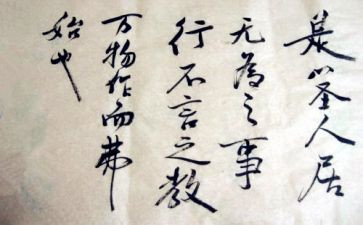 是以圣人居
无為之事
行不言之教
万物作而弗
始也